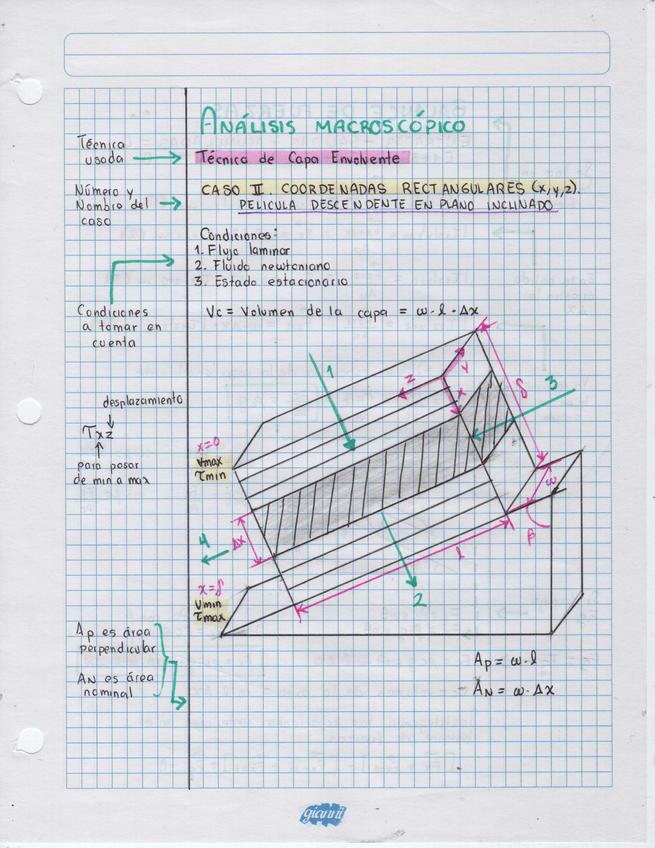 ANÁLISIS MACROSCÓPICO
Técnica
usada
Técnica de Capa Envolvente
Número y
Nombre del
caso
CASO II. COORDENADAS RECTANGULARES (x,y,z).
PELICULA DESCENDENTE EN PLANO INCLINADO
Condiciones:
1. Flujo laminar
2. Fluido newtoniano
3. Estado estacionario
Condiciones
a tomar en
cuenta
Vc = Volumen de la capa = ω·l·Δx
desplazamiento
τxz
para pasar
de min a max
1
z
y
x
δ
3
x=0
Vmax
τmin
ω
Δx
4
β
l
x=δ
Vmin
τmax
2
Ap es área
perpendicular
AN es área
nominal
Ap = ω·l
AN = ω·Δx
gianni